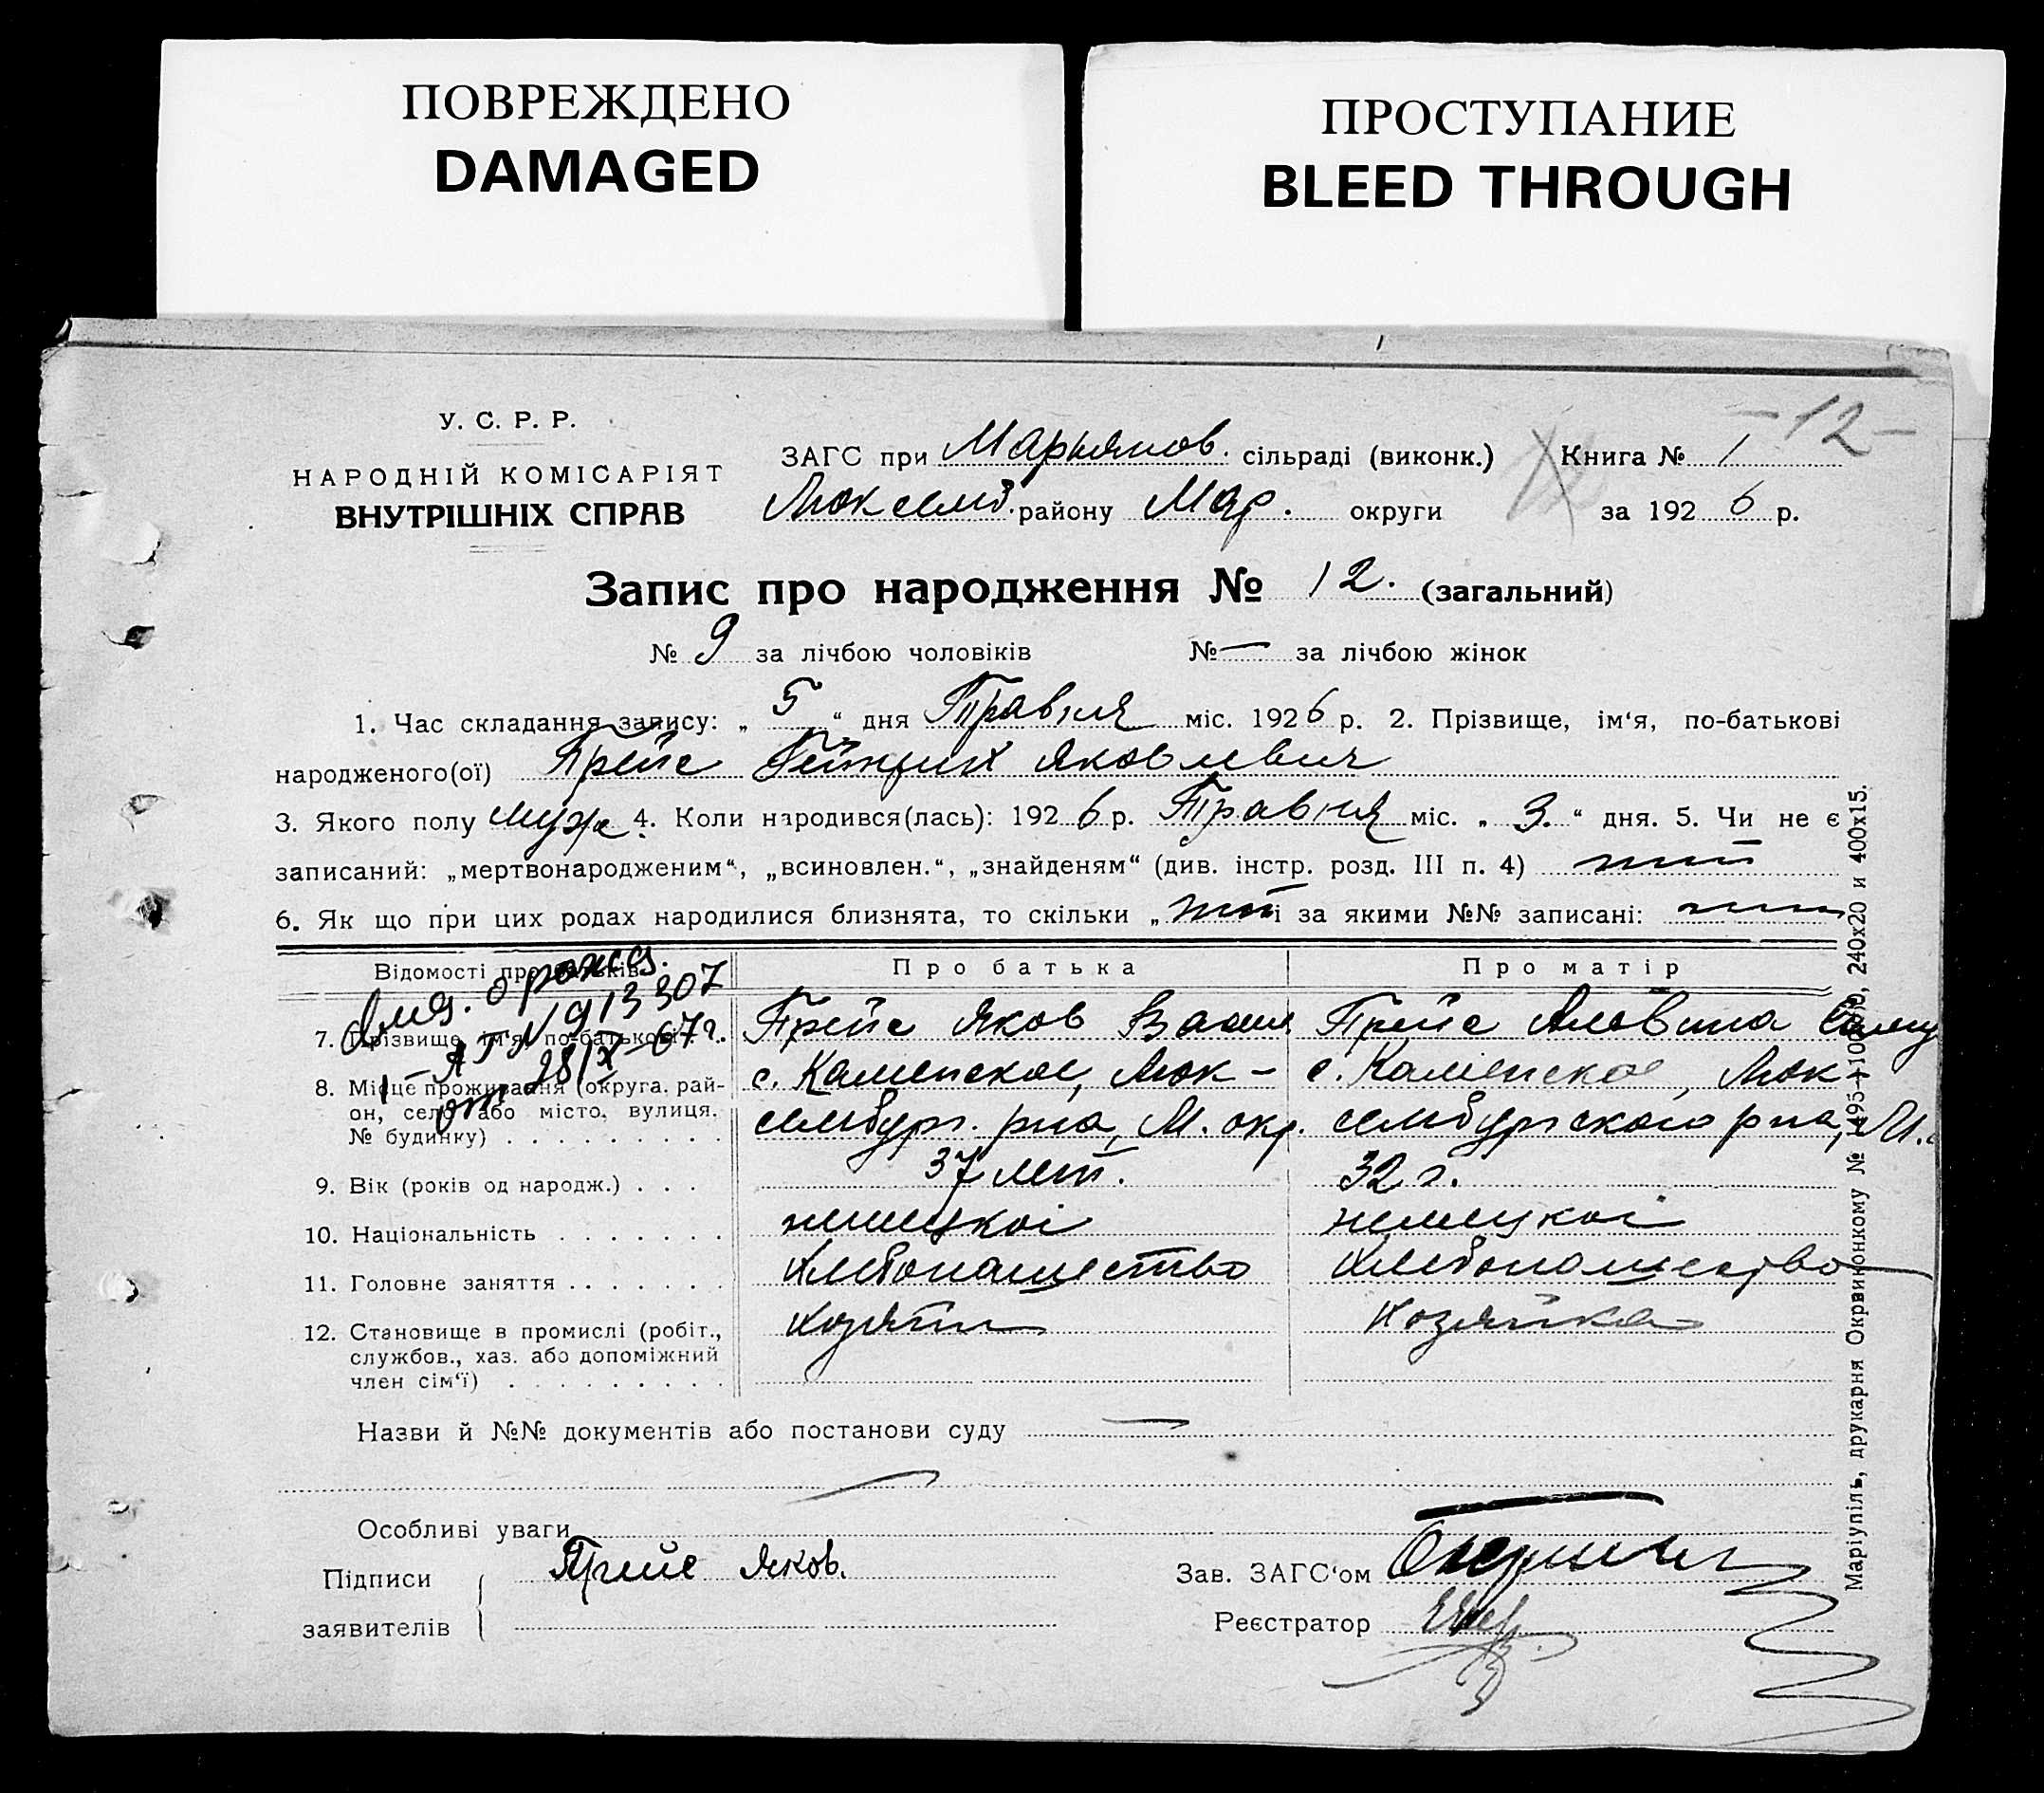 ПОВРЕЖДЕНО
DAMAGED
ПРОСТУПАНИЕ
BLEED THROUGH
-12-
У. С. Р. Р.
НАРОДНІЙ КОМІСАРІЯТ
ВНУТРІШНІХ СПРАВ
ЗАГС при Марьянов. сільраді (виконк.) Книга № 1
Люксемб. району Мар. округи за 1926 р.
Запис про народження № 12. (загальний)
№ 9 за лічбою чоловіків № — за лічбою жінок
1. Час складання запису: „ 5 “ дня Травня міс. 1926 р. 2. Прізвище, ім‘я, по-батькові
народженого(ої) Прейс Гейнрих Яковлевич
3. Якого полу муж. 4. Коли народився(лась): 1926 р. Травня міс. „ 3. “ дня. 5. Чи не є
записаний: „мертвонародженим“, „всиновлен.“, „знайденям“ (див. інстр. розд. III п. 4) нет
6. Як що при цих родах народилися близнята, то скільки „ нет і за якими №№ записані: нет
Відомості про батьків Про батька Про матір
7. Прізвище, ім‘я, по-батькові . . Прейс Яков Васил Прейс Альвина
8. Місце проживання (округа, рай- с. Каменское, Люк- с. Каменское, Люк-
он, село або місто, вулиця, сембург. р-на, М. окр. сембургского р-на, М.
№ будинку) . . . . . . . . .
9. Вік (років од народж.) . . . 37 лет. 32 г.
10. Національність . . . . . . . немецкой немецкой
11. Головне заняття . . . . . . . хлебопашество хлебопашество
12. Становище в промислі (робіт., хозяин хозяйка
службов., хаз. або допоміжний
член сім‘ї) . . . . . . . . .
о рожд.
N 913307
от 28/X-67г.
Назви й №№ документів або постанови суду —
Особливі уваги
Підписи Прейс Яков.
заявителів
Зав. ЗАГС‘ом
Реєстратор
Маріупіль, друкарня Окрвиконкому № 1495—10000, 240х20 и 400х15.